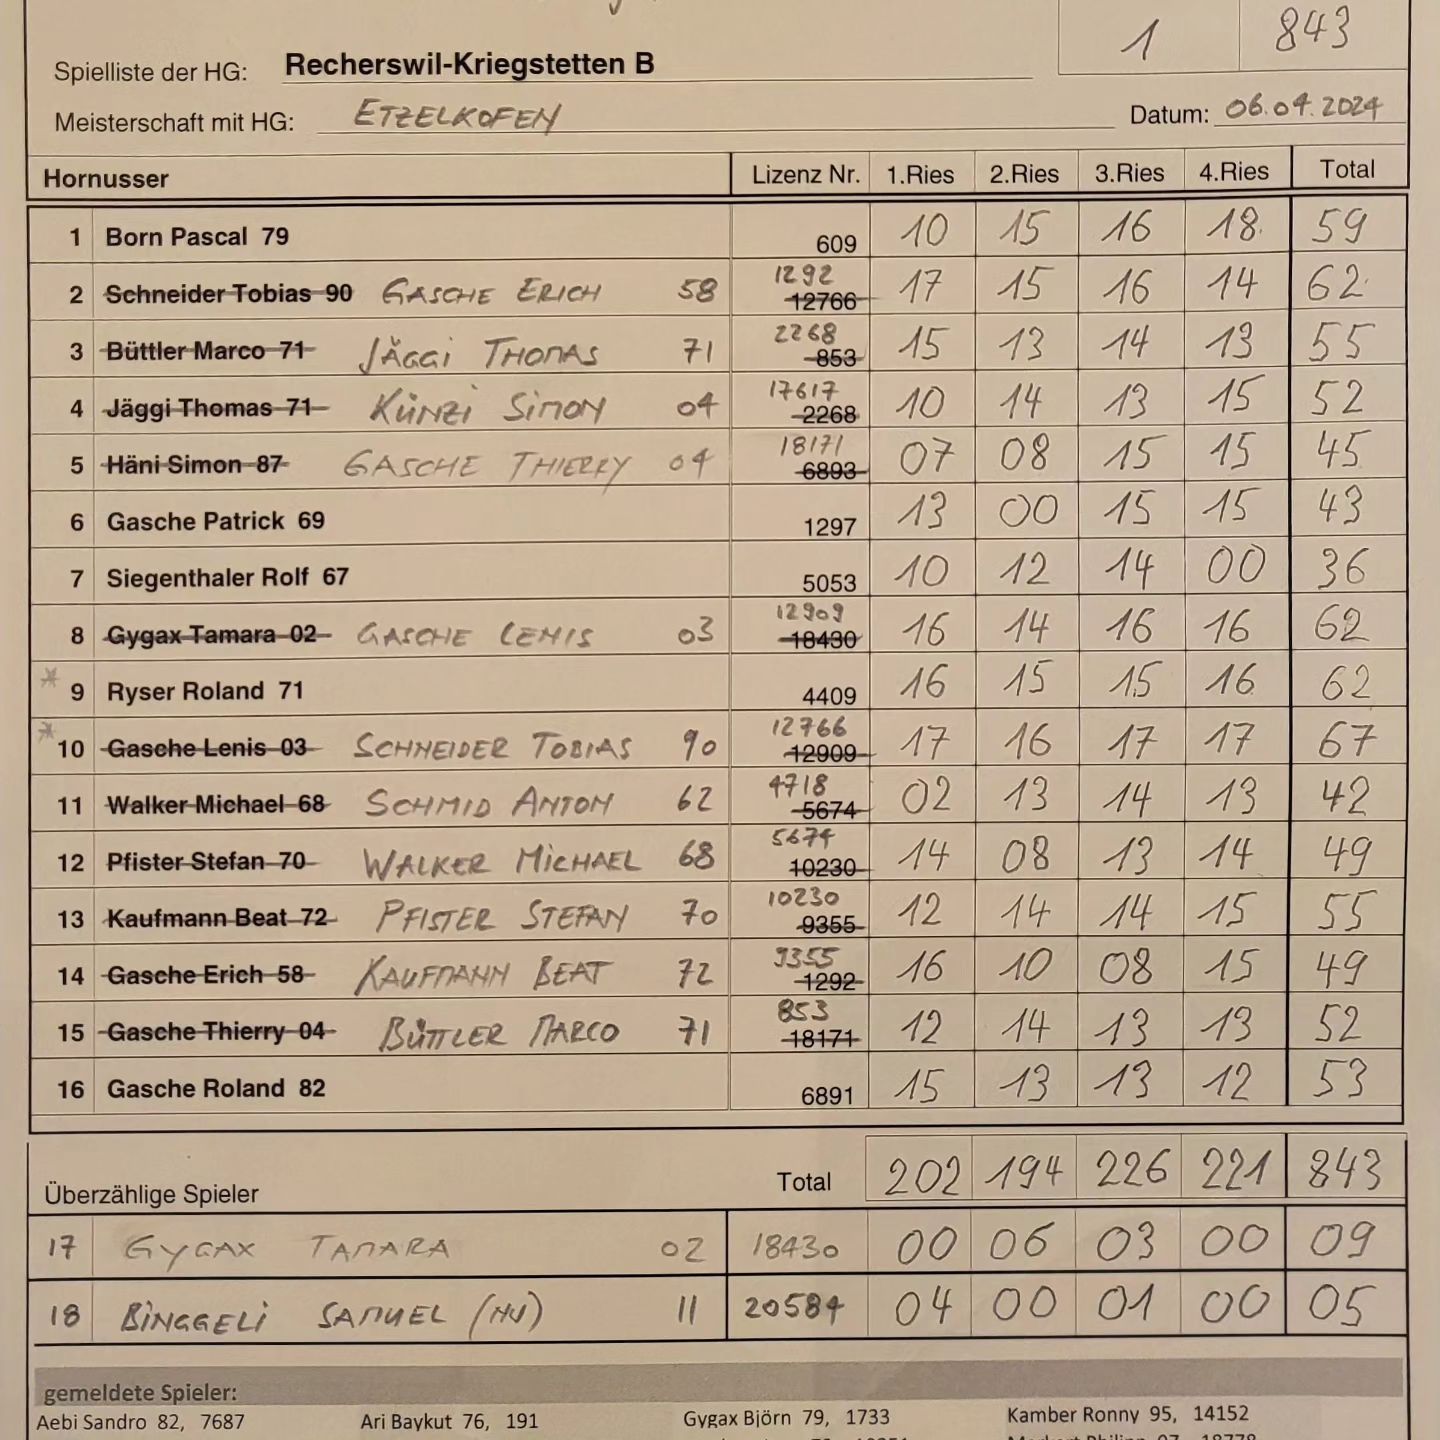 1 843
Spielliste der HG: Recherswil-Kriegstetten B
Meisterschaft mit HG: ETZELKOFEN Datum: 06.04.2024
Hornusser Lizenz Nr. 1.Ries 2.Ries 3.Ries 4.Ries Total
1 Born Pascal 79 609 10 15 16 18 59
2 Schneider Tobias 90 GASCHE ERICH 58 1292 12766 17 15 16 14 62
3 Büttler Marco 71 JÄGGI THOMAS 71 2268 853 15 13 14 13 55
4 Jäggi Thomas 71 KÜNZI SIMON 04 17617 2268 10 14 13 15 52
5 Häni Simon 87 GASCHE THIERRY 04 18171 6893 07 08 15 15 45
6 Gasche Patrick 69 1297 13 00 15 15 43
7 Siegenthaler Rolf 67 5053 10 12 14 00 36
8 Gygax Tamara 02 GASCHE LENIS 03 12909 18430 16 14 16 16 62
* 9 Ryser Roland 71 4409 16 15 15 16 62
* 10 Gasche Lenis 03 SCHNEIDER TOBIAS 90 12766 12909 17 16 17 17 67
11 Walker Michael 68 SCHMID ANTON 62 4718 5674 02 13 14 13 42
12 Pfister Stefan 70 WALKER MICHAEL 68 5674 10230 14 08 13 14 49
13 Kaufmann Beat 72 PFISTER STEFAN 70 10230 9355 12 14 14 15 55
14 Gasche Erich 58 KAUFMANN BEAT 72 9355 1292 16 10 08 15 49
15 Gasche Thierry 04 BÜTTLER MARCO 71 853 18171 12 14 13 13 52
16 Gasche Roland 82 6891 15 13 13 12 53
Überzählige Spieler Total 202 194 226 221 843
17 GYGAX TAMARA 02 18430 00 06 03 00 09
18 BINGGELI SAMUEL (NV) 11 20584 04 00 01 00 05
gemeldete Spieler:
Aebi Sandro 82, 7687 Ari Baykut 76, 191 Gygax Björn 79, 1733 Kamber Ronny 95, 14152